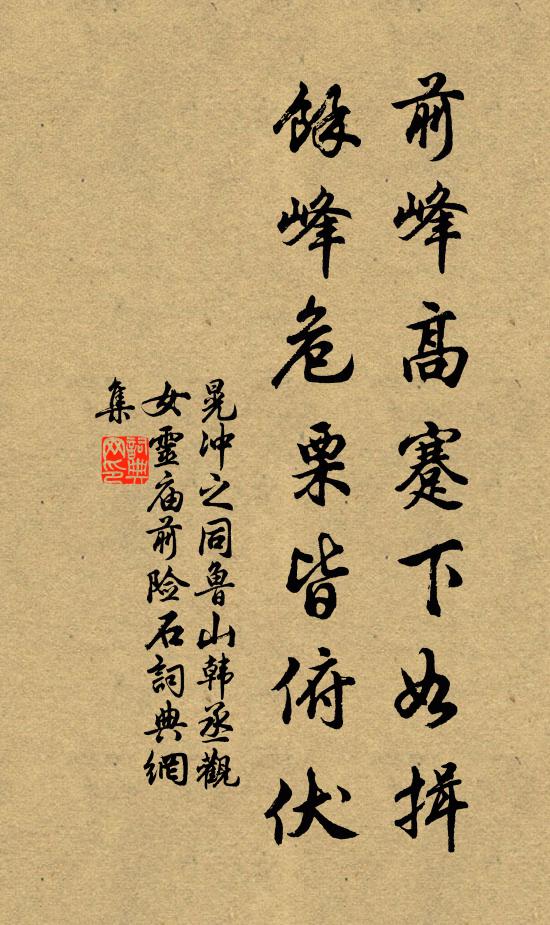 前峰高蹇下如揖
餘峰危栗皆俯伏
晁冲之同鲁山韩丞觀
女靈庙前险石詞典網
集
詞典
网印